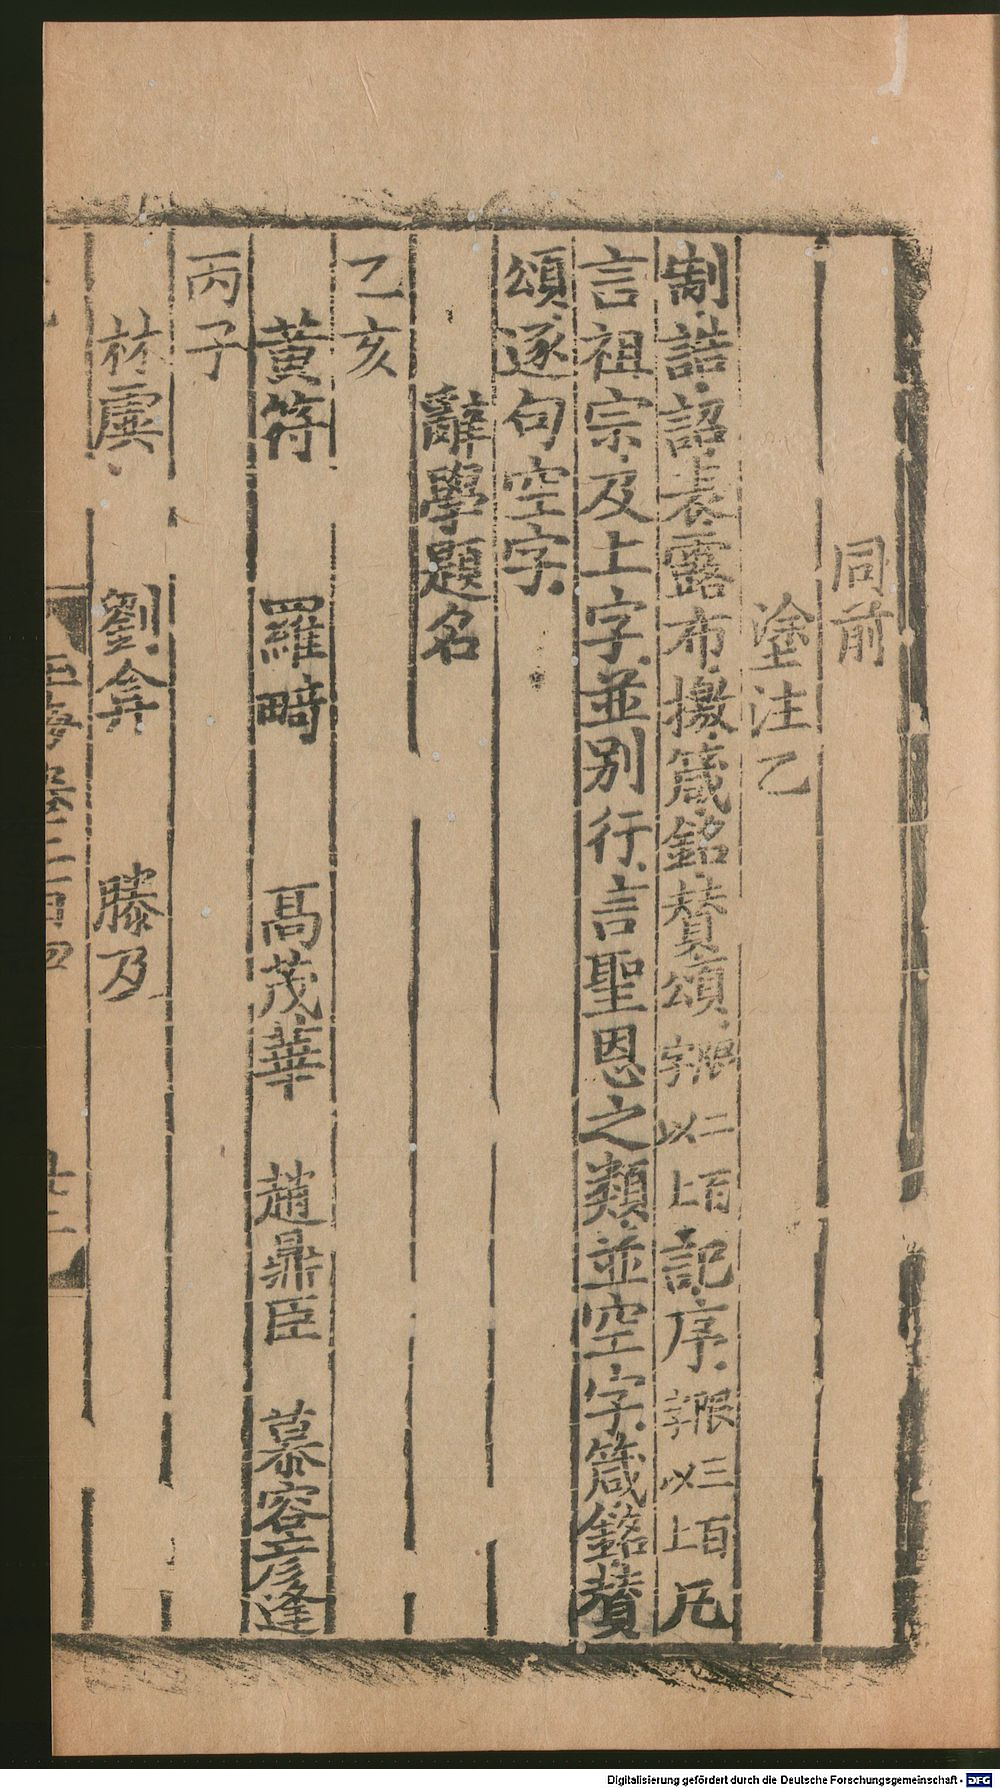 同前
塗注乙
制誥詔表露布檄箴銘贊頌限二百字以上記序限三百字以上凡
言祖宗及上字並別行言聖恩之類並空字箴銘贊
頌逐句空字
辭學題名
乙亥
黃符 羅畸 高茂華 趙鼎臣 慕容彥逢
丙子
林虡 劉弇 滕及
玉海卷二百四 廿二
Digitalisierung gefördert durch die Deutsche Forschungsgemeinschaft - DFG